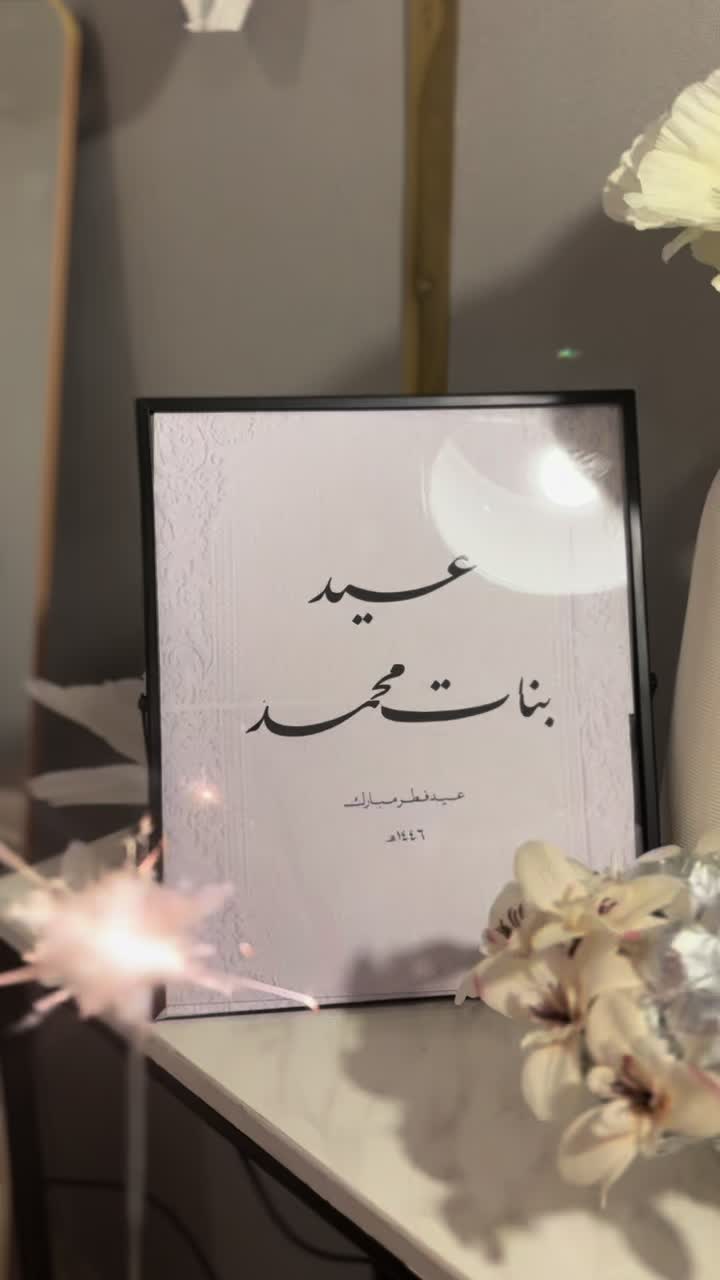 عيد
بنات محمد
عيد فطر مبارك
١٤٤٦هـ